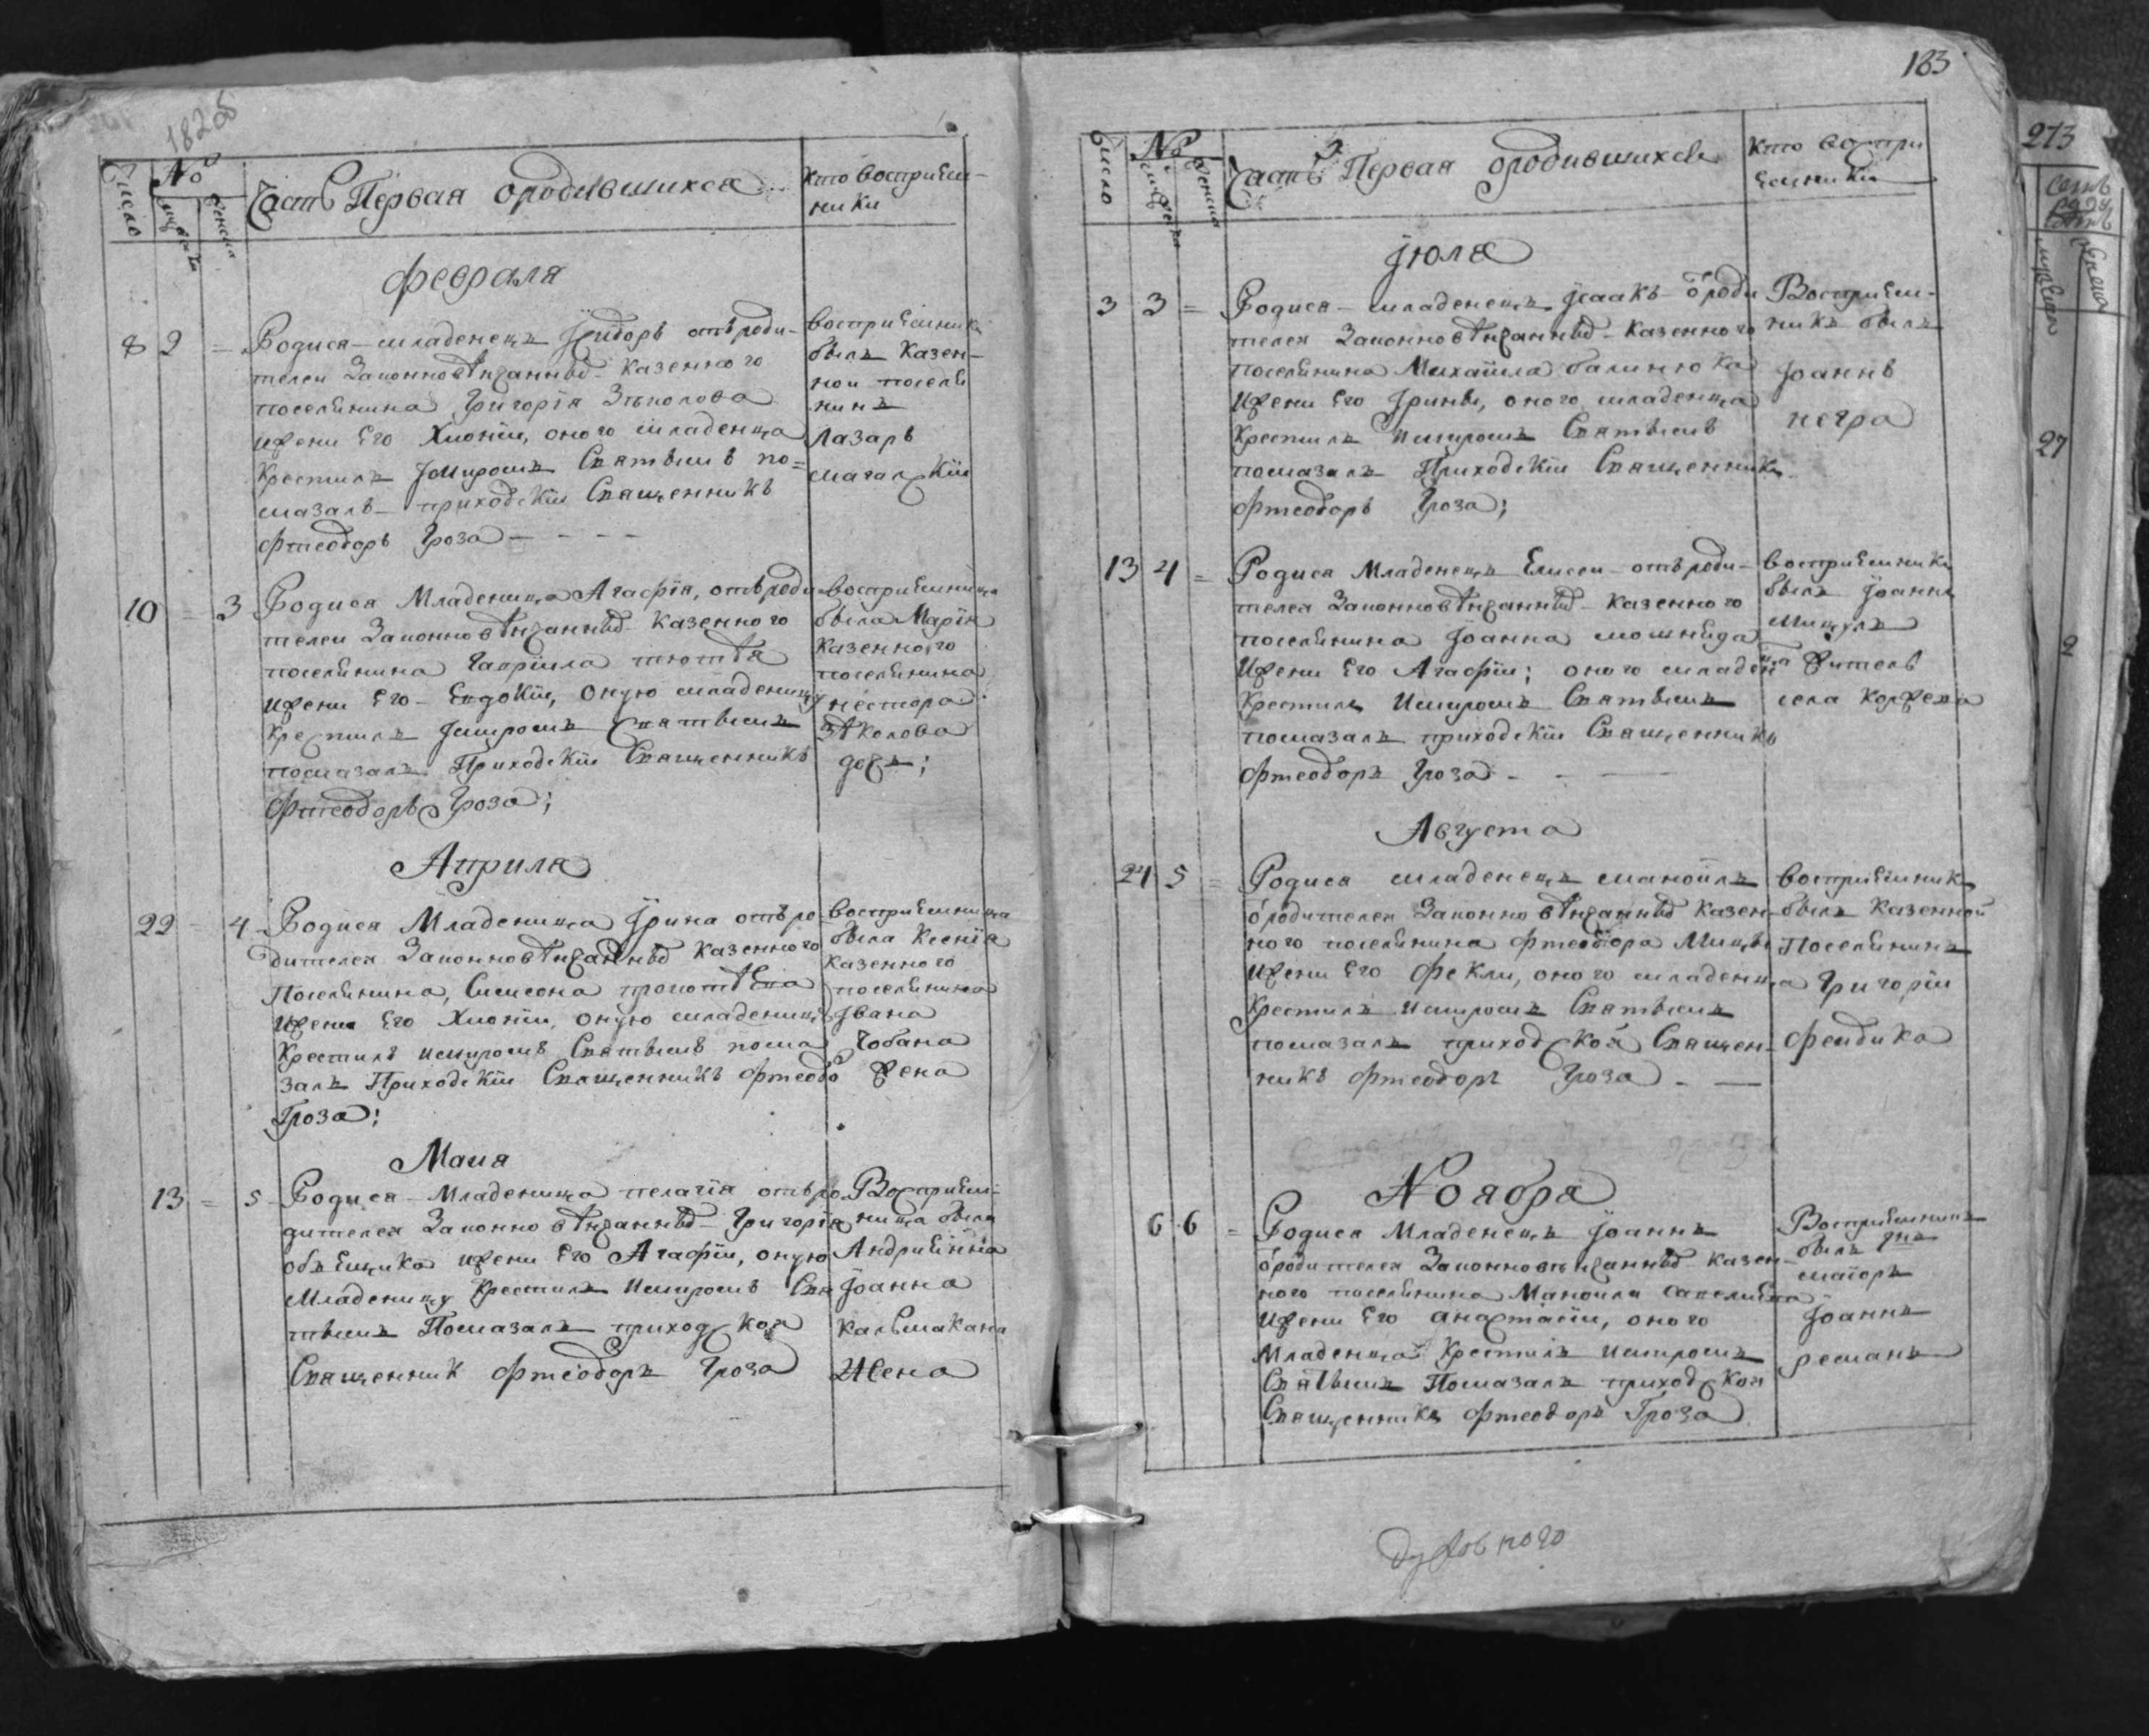 182об
Число
№
мужеска
женска
Часть Первая ородившихся
Кто восприем-
ники
февраля
8 2 = Родися младенецъ Ісидоръ отъ роди-
телей Законновѣнчанныхъ Казенного
поселянина Григорія
жени Его Хионіи, оного младенца
Крестилъ Імиромъ Святымъ по=
мазалъ приходскій Священникъ
Фтеодоръ Гроза
восприемникъ
былъ Казен-
ной поселя
нинъ
Лазаръ
10 = 3 Родися Младеница Агафія, отъ роди
телей Законновѣнчанныхъ Казенного
поселянина Гавріила
жени Его Евдокіи, оную младеницу
Крестилъ Імиромъ Святымъ
помазалъ Приходскій Священникъ
Фтеодоръ Гроза;
восприемница
была Марія
Казенного
поселянина
нестора
дочь;
Априля
22 = 4 Родися Младеница Ірина отъ ро
дителей Законновѣнчанныхъ Казенного
Поселянина, Симеона
жени Его Хионіи, оную младеницу
Крестилъ имиромъ Святымъ пома
залъ Приходскій Священникъ Фтеодо
Гроза;
восприемница
была Ксенія
Казенного
поселянина
Ивана
Чобана
жена
Маия
13 = 5 Родися Младеница пелагія отъ ро
дителей Законновѣнчанныхъ Григорія
объещика жени Его Агафіи, оную
Младеницу Крестилъ Имиромъ Свя
тымъ Помазалъ приходской
Священник Фтеодоръ Гроза
Восприем-
ница была
Іоанна
Кальмакана
Жена
183
Число
№
мужеска
женска
Часть Первая ородившихся
Кто воспри
емники
Іюля
3 3 = Родися младенецъ Ісаакъ ороди
телей Законновѣнчанныхъ Казенного
поселянина Михаила балинюка
жени Его Ірины, оного младенца
Крестилъ Имиромъ Святымъ
помазалъ Приходскій Священникъ
Фтеодоръ Гроза;
Восприем-
никъ былъ
Іоаннъ
негра
13 4 = Родися Младенецъ Елисей отъ роди-
телей Законновѣнчанныхъ Казенного
поселянина Іоанна
жени Его Агафіи; оного младенца
Крестилъ Имиромъ Святымъ
помазалъ приходскій Священникъ
Фтеодоръ Гроза
восприемникъ
былъ Іоаннъ
житель
села
Августа
24 5 = Родися младенецъ маноилъ
ородителей Законновѣнчанныхъ Казен-
ного поселянина Фтеодора
жени Его Феклы, оного младенца
Крестилъ Имиромъ Святымъ
помазалъ приходской Священ-
никъ Фтеодоръ Гроза
восприемникъ
былъ Казенной
Поселянинъ
Григорій
Фендика
Ноября
6 6 = Родися Младенецъ Іоаннъ
ородителей Законновѣнчанныхъ Казен-
ного поселянина Маноила
жени Его анастасіи, оного
Младенца Крестилъ Имиромъ
Святымъ Помазалъ приходской
Священникъ Фтеодоръ Гроза
Восприемникъ
былъ
маіоръ
Іоаннъ
романъ
Духовного
273
27
2